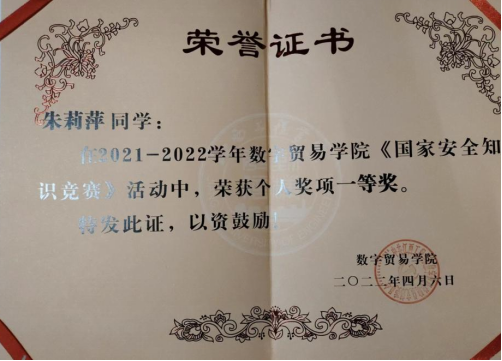 荣誉证书
朱莉萍同学：
在2021-2022学年数字贸易学院《国家安全知
识竞赛》活动中，荣获个人奖项一等奖。
特发此证，以资鼓励！
数字贸易学院
二〇二二年四月六日